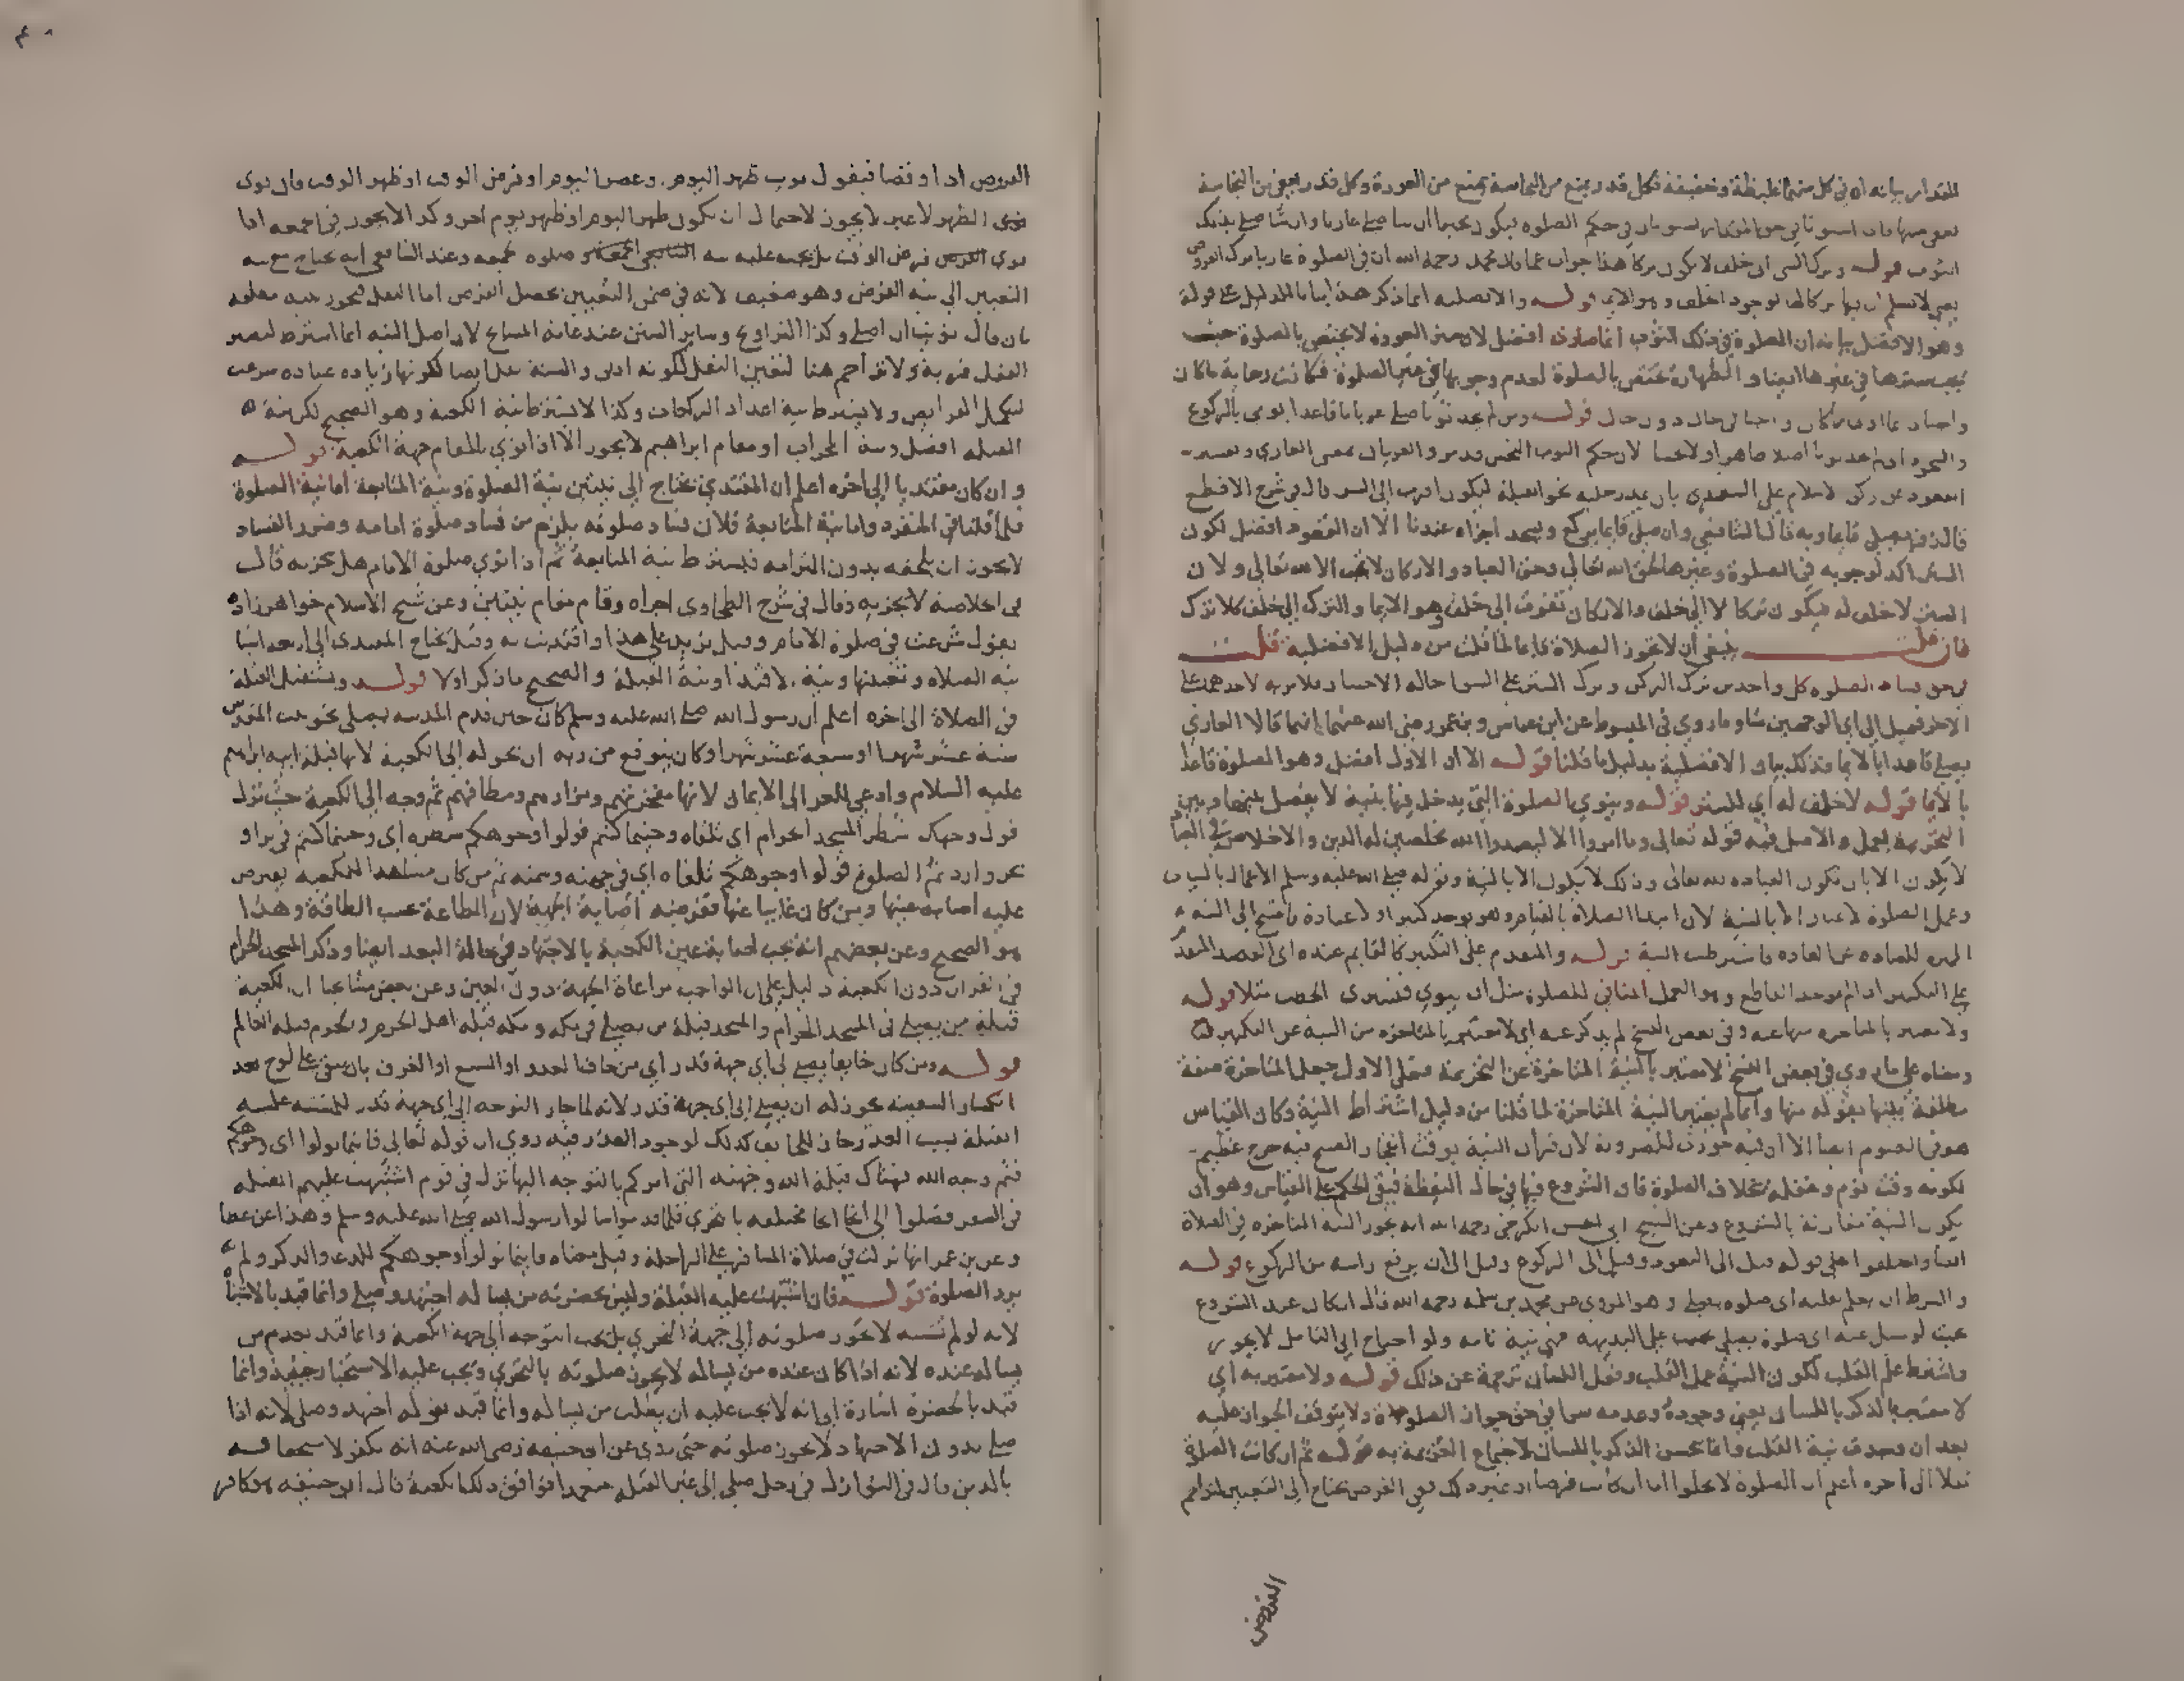 المقدار بيانه ان في كل منهما غليظة وخفيفة فكل قدر يمنع من النجاسة يمنع من العورة وكل قدر يعفى من النجاسة
يعفى منها فان استويا في حق المقدار يستويان في حكم الصلوة فيكون مخيرا ان شا صلى عاريا وان شا صلى بذلك
الثوب قوله وترك الشي الى خلف لا يكون تركا هذا جواب عما قال محمد رحمه الله ان في الصلوة عاريا ترك الفروض
يعني لا نسلم ان بها تركا لوجود الخلف وهو الايما قوله والافضلية انما ذكر هذا لبيان الدليل على قوله
وهو الافضل بيانه ان الصلوة في ذلك الثوب انما صارت افضل لان ستر العورة لا يختص بالصلوة حيث
يجب سترها في غيرها ايضا والطهارة تختص بالصلوة لعدم وجوبها في غير الصلوة فكانت رعاية ما كان
واجبا دائما اولى مما كان واجبا في حال دون حال قوله ومن لم يجد ثوبا صلى عريانا قاعدا يومي بالركوع
والسجود اي لم يجد ثوبا اصلا طاهرا ولا نجسا لان حكم الثوب النجس قد مر والعريان بمعنى العاري
قال زفر يصلي قايما وبه قال الشافعي وان صلى قايما يركع ويسجد اجزاه عندنا الا ان القعود افضل لكون
الستر اكد لوجوبه في الصلوة وغيرها لحق الله تعالى وحق العباد والاركان لا تجب الا لله تعالى ولان
الستر لا خلف له فيكون تركا لا الى خلف والاركان تفوت الى خلف وهو الايما والترك الى خلف كلا ترك
فان قلت ينبغي ان لا تجوز الصلاة قايما لما قلت من دليل الافضلية قلت
في حق فساد الصلوة كل واحد من ترك الركن وترك الستر على السوا حالة الاختيار فلا مزية لاحدهما على
الاخر فيميل الى اي الوجهين شا وما روي في المبسوط عن ابن عباس وابن عمر رضي الله عنهما انهما قالا العاري
يصلي قاعدا بالايما فذلك بيان الافضلية بدليل ما قلنا قوله الا ان الاول افضل وهو الصلوة قاعدا
بالايما قوله لا خلف له اي للستر قوله وينوي الصلوة التي يدخل فيها بنية لا يفصل بينها وبين
التحريمة بعمل والاصل فيه قوله تعالى وما امروا الا ليعبدوا الله مخلصين له الدين والاخلاص في العبادة
لا يكون الا بان تكون العبادة لله تعالى وذلك لا يكون الا بالنية وقوله صلى الله عليه وسلم الاعمال بالنيات
وعمل الصلوة لا عبادة الا بالنية لان ابتدا الصلاة بالقيام وهو يوجد كثيرا ولا عبادة فاحتيج الى النية
المميزة للعبادة عن العادة فاشترطت النية قوله والمتقدم على التكبير كالقايم عنده اي القصد المتقدم
على التكبير اذا لم يوجد القاطع وهو العمل المنافي للصلوة مثل ان ينوي فيشتري الحطب مثلا قوله
ولا معتبر بالمتاخرة منها عنه وفي بعض النسخ لم يذكر عنه اي لا معتبر بالمتاخرة من النية عن التكبير
ومعناه على ما روي في بعض النسخ لا معتبر بالنية المتاخرة عن التحريمة فعلى الاول جعل المتاخرة صفة
مطلقة بينها بقوله منها وانما لم يعتبر النية المتاخرة لما قلنا من دليل اشتراط النية وكان القياس
هو في الصوم ايضا الا انه فيه جوزت للضرورة لان قران النية بوقت انفجار الصبح فيه حرج عظيم
لكونه وقت نوم وغفلة بخلاف الصلوة فان الشروع فيها في حال اليقظة فبقي الحكم على القياس وهو ان
يكون النية مقارنة بالشروع وعن الشيخ ابي الحسن الكرخي رحمه الله انه يجوز النية المتاخرة في الصلاة
ايضا واختلفوا على قوله قيل الى التعوذ وقيل الى الركوع وقيل الى ان يرفع راسه من الركوع قوله
والشرط ان يعلم بقلبه اي صلوة يصلي وهو المروي عن محمد بن سلمه رحمه الله قال ان كان عند الشروع
بحيث لو سئل عنه اي صلوة يصلي يجيب على البديهة فهي نية تامة ولو احتاج الى التامل لا يجوز
واشترط علم القلب لكون النية عمل القلب وفعل اللسان ترجمة عن ذلك قوله ولا معتبر به اي
لا معتبر بالذكر باللسان يعني وجوده وعدمه سوا في حق جواز الصلوة ولا يتوقف الجواز عليه
بعد ان وجدت نية القلب وانما يحسن الذكر باللسان لاجتماع العزيمة به قوله ثم ان كانت الصلوة
نفلا الى اخره اعلم ان الصلوة لا يخلوا اما ان كانت فرضا او غير ذلك ففي الفرض يحتاج الى التعيين لتزاحم
الفروض
الفروض ادا او قضا فيقول نويت ظهر اليوم وعصر اليوم او فرض الوقت او ظهر الوقت فان نوى
نوى الظهر لا غير لا يجوز لاحتمال ان يكون ظهر اليوم او ظهر يوم اخر وكذا لا يجوز في الجمعة اذا
نوى الفرض فرض الوقت بل يجب عليه نية صلوة الجمعة وعند الشافعي انه يحتاج مع نية
التعيين الى نية الفرض وهو ضعيف لانه في ضمن التعيين يحصل الفرض اما النفل فيجوز بنية مطلقة
بان قال نويت ان اصلي وكذا التراويح وساير السنن عند عامة المشايخ لان اصل النية انما اشترط لتصير
الفعل قربة ولا تزاحم هنا لتعين النفل لكونه ادنى والسنة نفل ايضا لكونها زيادة عبادة شرعت
لتكميل الفرايض ولا يشترط نية اعداد الركعات وكذا لا يشترط نية الكعبة وهو الصحيح لكن نية
القبلة افضل ونية المحراب او مقام ابراهيم لا يجوز الا اذا نوى بالمقام جهة الكعبة قوله
وان كان مقتديا الى اخره اعلم ان المقتدي يحتاج الى نيتين نية الصلوة ونية المتابعة اما نية الصلوة
فلما قلنا في المنفرد واما نية المتابعة فلان فساد صلوته يلزم من فساد صلوة امامه وضرر الفساد
لا يجوز ان يلحقه بدون التزامه فيشترط نية المتابعة ثم اذا نوى صلوة الامام هل يجزيه قال
في الخلاصة لا يجزيه وقال في شرح الطحاوي اجزاه وقام مقام نيتين وعن شيخ الاسلام خواهر زاده
يقول شرعت في صلوة الامام وقيل يزيد على هذا واقتديت به وقيل يحتاج المقتدي الى اربعة اشيا
نية الصلاة وتعيينها ونية الاقتدا ونية القبلة والصحيح ما ذكر اولا قوله ويستقبل القبلة
في الصلاة الى اخره اعلم ان رسول الله صلى الله عليه وسلم كان حين قدم المدينة يصلي نحو بيت المقدس
ستة عشر شهرا او سبعة عشر شهرا وكان يتوقع من ربه ان يحوله الى الكعبة لانها قبلة ابيه ابراهيم
عليه السلام وادعى للعرب الى الايمان لانها مفخرتهم ومزارهم ومطافهم ثم وجه الى الكعبة حيث نزل
فول وجهك شطر المسجد الحرام اي تلقاه وحيثما كنتم فولوا وجوهكم شطره اي وحيثما كنتم في بر او
بحر واردتم الصلوة فولوا وجوهكم تلقاه اي في جهته وسمته ثم من كان مشاهدا للكعبة يفترض
عليه اصابة عينها ومن كان غايبا عنها ففرضه اصابة الجهة لان الطاعة بحسب الطاقة وهذا
هو الصحيح وعن بعضهم انه يجب اصابة عين الكعبة بالاجتهاد في حالة البعد ايضا وذكر المسجد الحرام
في القران دون الكعبة دليل على ان الواجب مراعاة الجهة دون العين وعن بعض مشايخنا ان الكعبة
قبلة من يصلي في المسجد الحرام والمسجد قبلة من يصلي في مكه ومكه قبلة اهل الحرم والحرم قبلة العالم
قوله ومن كان خايفا يصلي الى اي جهة قدر اي من خاف العدو او السبع او الغرق بان بقي على لوح بعد
انكسار السفينة يجوز له ان يصلي الى اي جهة قدر لانه لما جاز التوجه الى اي جهة قدر للمشتبه عليه
القبلة بسبب العذر جاز للخايف كذلك لوجود العذر فيه روي ان قوله تعالى فاينما تولوا اي وجوهكم
فثم وجه الله فهناك قبلة الله وجهته التي امركم بالتوجه اليها نزل في قوم اشتبهت عليهم القبلة
في السفر فصلوا الى انحا مختلفة بالتحري فلما قدموا سالوا رسول الله صلى الله عليه وسلم وهذا عن عطا
وعن بن عمر انها نزلت في صلاة المسافر على الراحلة وقيل معناه فاينما تولوا وجوهكم للدعا والذكر ولم
يرد الصلوة قوله فان اشتبهت عليه القبلة وليس بحضرته من يساله اجتهد وصلى وانما قيد بالاشتباه
لانه لو لم تشتبه لا يجوز صلوته الى جهة التحري بل يجب التوجه الى جهة الكعبة وانما قيد بعدم من
يساله عنده لانه اذا كان عنده من يساله لا يجوز صلوته بالتحري ويجب عليه الاستخبار حينئذ وانما
قيد بالحضرة اشارة الى انه لا يجب عليه ان يطلب من يساله وانما قيد بقوله اجتهد وصلى لانه اذا
صلى بدون الاجتهاد لا يجوز صلوته حتى روي عن ابي حنيفة رضي الله عنه انه يكفر لاستخفافه
بالدين قال في النوازل في رجل صلى الى غير القبلة متعمدا فوافق ذلك الكعبة قال ابو حنيفه هو كافر